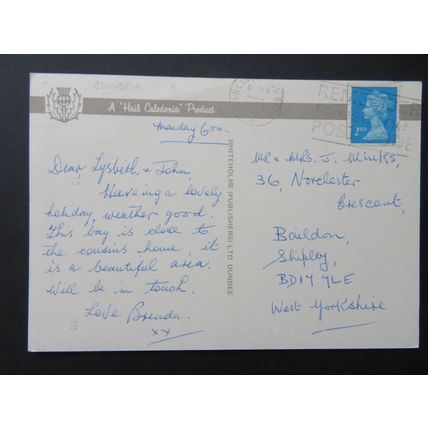 CUMBRIA
A "Hail Caledonia" Product
2ND
Monday 6TH
Dear Lysbeth & John,
Having a lovely
holiday, weather good.
This bay is close to
the cousins home, it
is a beautiful area.
Will be in touch.
Love Brenda.
xx
WHITEHOLME (PUBLISHERS) LTD. DUNDEE
MR & MRS. J. Minks,
36, Norchester
Crescent,
Baildon,
Shipley,
BD17 7LE
West Yorkshire